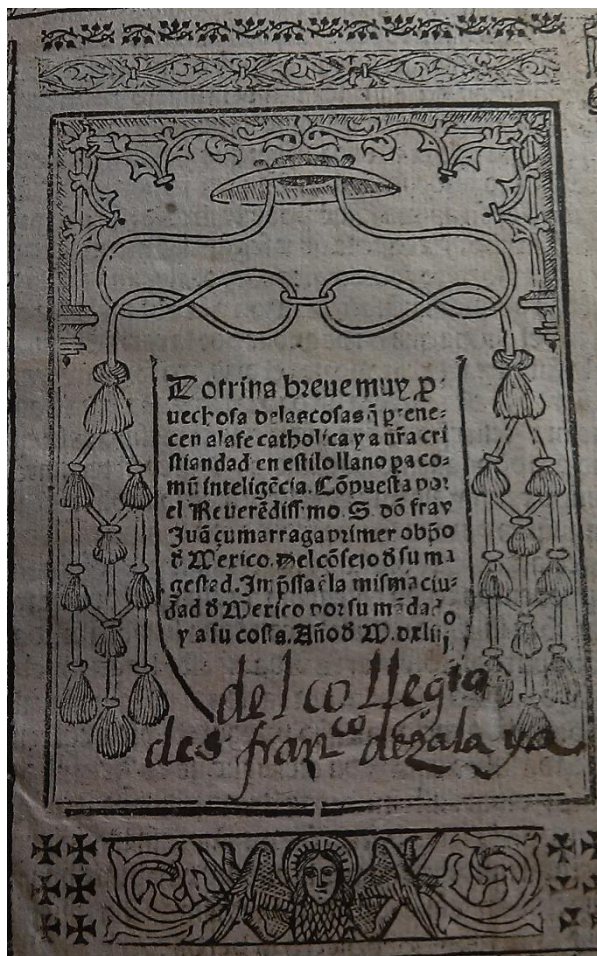 Dotrina breue muy ꝓ-
uechosa delascosas q̃ ꝑtene-
cen alafe catholica y a nr̃a cri
stiandad en estilo llano ꝑa co-
mũ inteligẽcia. Cõpuesta por
el Reuerẽdissimo. S. dõ fray
Juã çumarraga primer obp̃o
d̓ Mexico. Del cõsejo d̓ su ma
gestad. Imp̃ssa ẽ la misma ciu-
dad d̓ Mexico por su mãdado
y a su costa. Año d̓ M.dxliij
del collegio
de s franco de